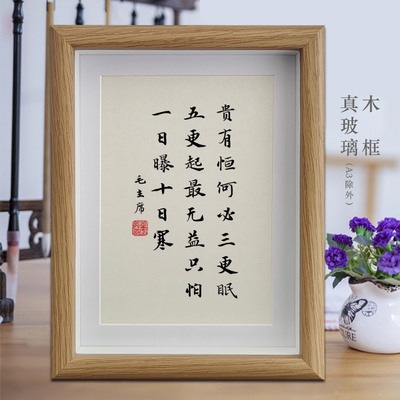 貴有恒何必三更眠
五更起最无益只怕
一日曝十日寒
毛主席
木框
真玻璃
(A3除外)